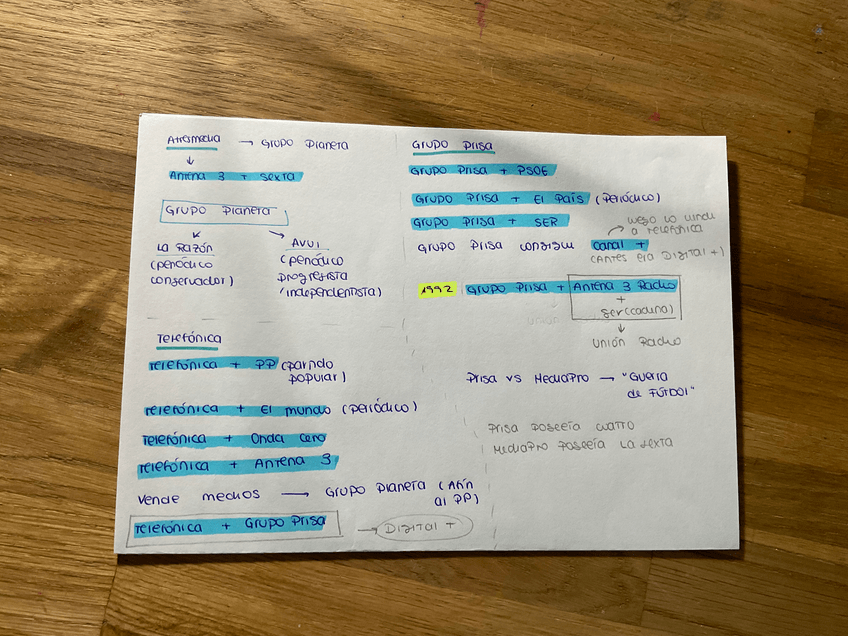 Atresmedia → Grupo Planeta
↓
Antena 3 + Sexta
Grupo Planeta
La Razón
(periódico
conservador)
AVUI
(periódico
progresista
/independentista)
Telefónica
Telefónica + PP (partido
popular)
Telefónica + El mundo (periódico)
Telefónica + Onda Cero
Telefónica + Antena 3
Vende medios → Grupo Planeta (Afín
al PP)
Telefónica + Grupo Prisa → Digital +
Grupo Prisa
Grupo Prisa + PSOE
Grupo Prisa + El País (periódico)
Grupo Prisa + SER
luego lo
a Telefónica
Grupo Prisa Canal +
(Antes era Digital +)
1992 Grupo Prisa + Antena 3 Radio
+
Ser (cadena)
↓
Unión
Unión Radio
Prisa vs MediaPro → "Guerra
de FÚTBOL"
Prisa poseería Cuatro
MediaPro poseería La Sexta